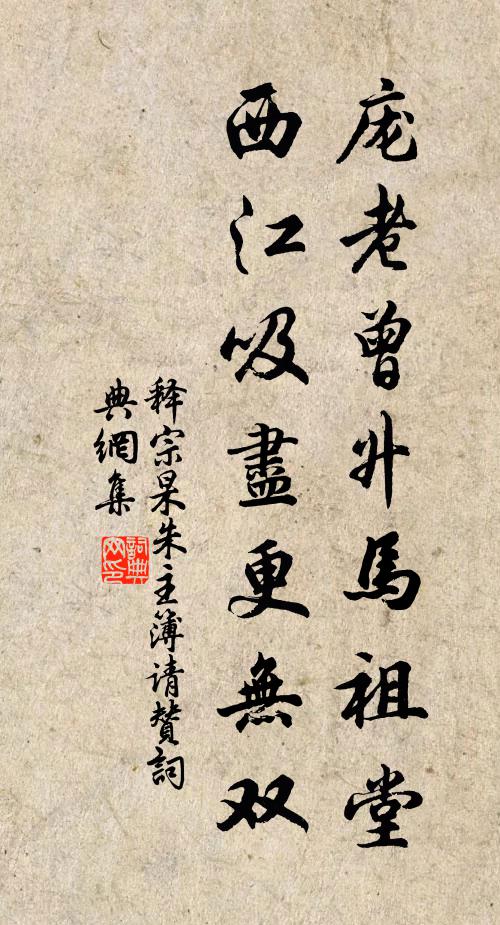 庞老曾升馬祖堂
西江吸盡更無双
释宗杲朱主簿请赞詞
典網集
詞典
网印